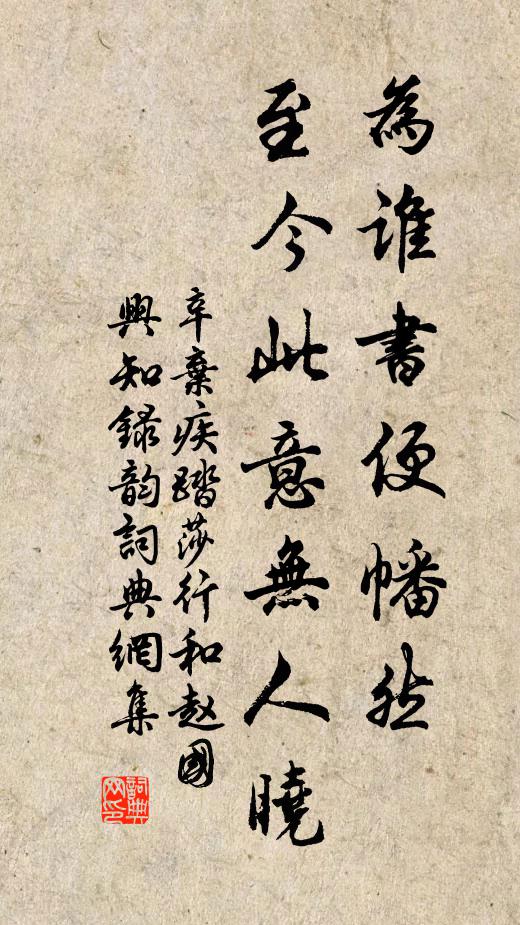 為谁書便幡然
至今此意無人曉
辛棄疾踏莎行和赵國
興知録韵詞典網集
詞典
网印